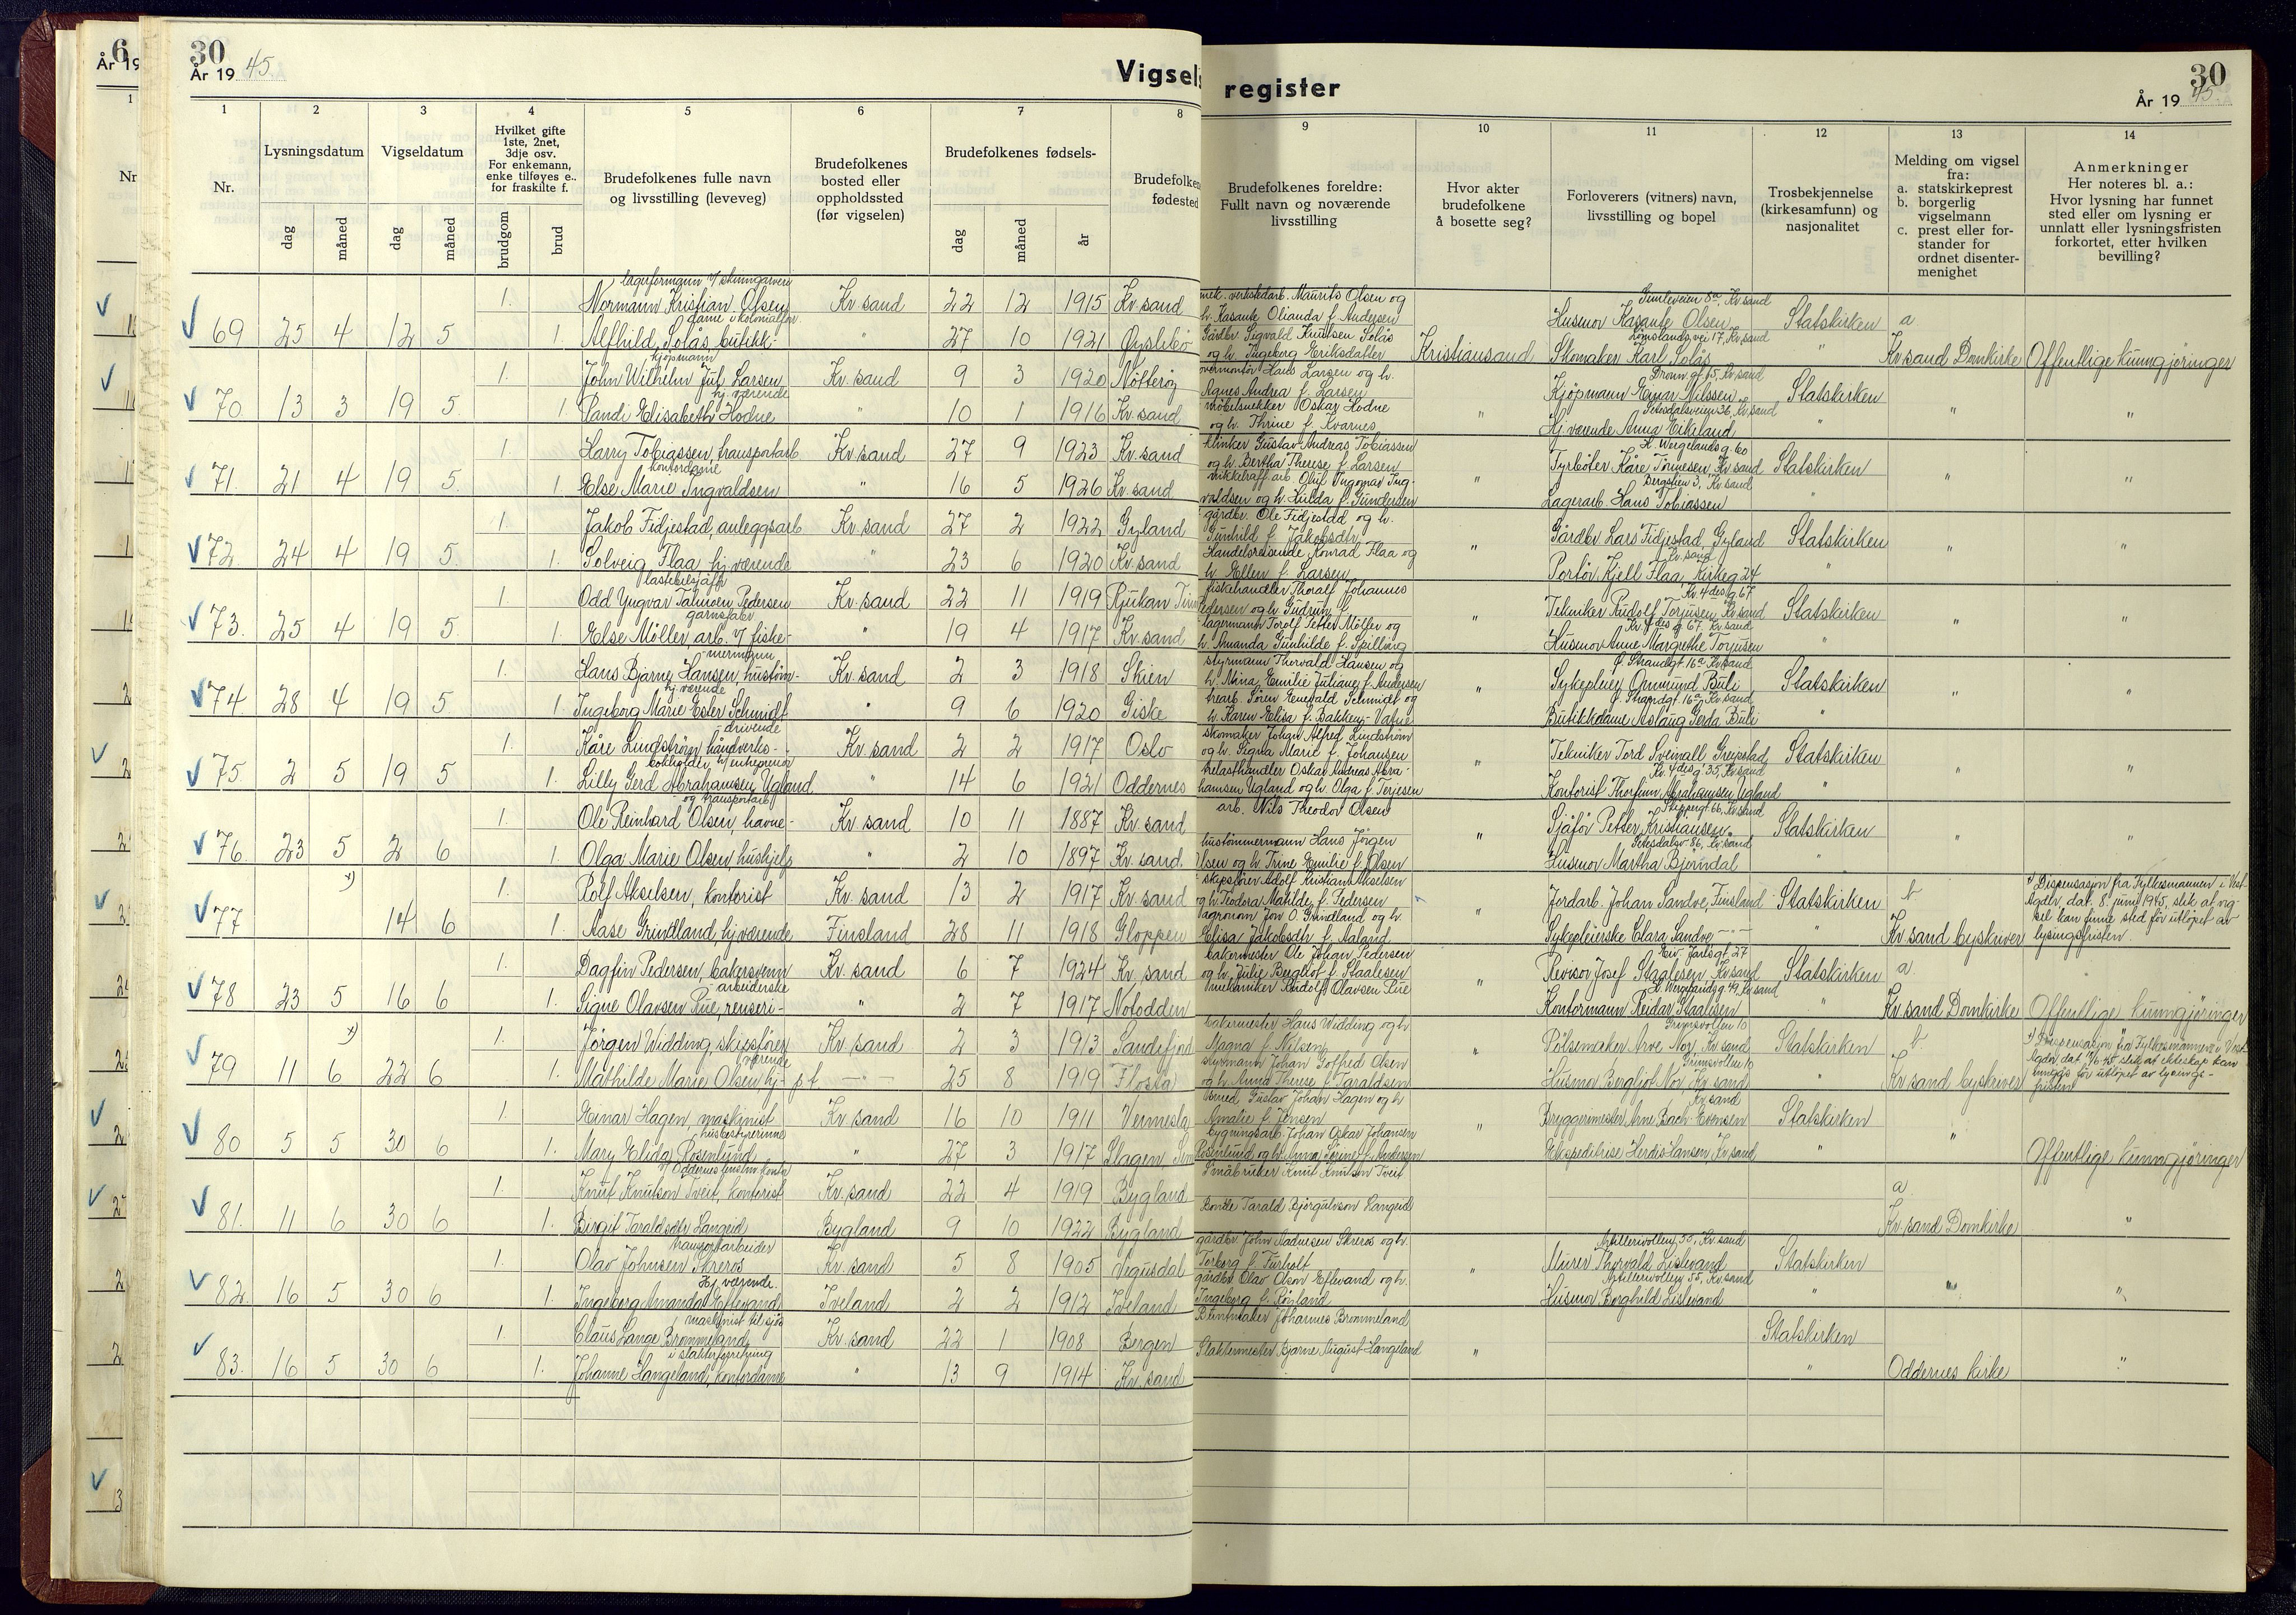 30
År 1945.
Vigsels
register
30
År 1945.
1 2 3 4 5 6 7 8 9 10 11 12 13 14
Nr.
Lysningsdatum
dag måned
Vigseldatum
dag måned
Hvilket gifte
1ste, 2net,
3dje osv.
For enkemann,
enke tilføyes e.,
for fraskilte f.
brudgom brud
Brudefolkenes fulle navn
og livsstilling (leveveg)
Brudefolkenes
bosted eller
oppholdssted
(før vigselen)
Brudefolkenes fødsels-
dag måned år
Brudefolkenes
fødested
Brudefolkenes foreldre:
Fullt navn og noværende
livsstilling
Hvor akter
brudefolkene
å bosette seg?
Forloverers (vitners) navn,
livsstilling og bopel
Trosbekjennelse
(kirkesamfunn) og
nasjonalitet
Melding om vigsel
fra:
a. statskirkeprest
b. borgerlig
vigselmann
c. prest eller for-
stander for
ordnet disenter-
menighet
Anmerkninger
Her noteres bl. a.:
Hvor lysning har funnet
sted eller om lysning er
unnlatt eller lysningsfristen
forkortet, etter hvilken
bevilling?
lagerformann v/ skinngarveri
1. Normann Kristian Olsen Kv.sand 22 12 1915 Kv.sand mek. verkstedarb. Maurits Olsen og
h. Kasante Olianda f. Andersen Husmor Kasante Olsen Gimleveien 8a, Kv.sand Statskirken a
69 25 4 12 5 1. Alfhild Solås, butikk- dame i kolonialforr. " 27 10 1921 Øyslebø Gårdbr. Sigvald Knutsen Solås
og h. Ingeborg Eriksdatter Kristiansand Skomaker Karl Solås vei 17, Kv.sand " Kv.sand Domkirke Offentlige kunngjøringer
kjøpmann
1. John Wilhelm Juf Larsen Kv.sand 9 3 1920 Nøtterøy overmontør Hans Larsen og h.
Agnes Andrea f. Larsen Kjøpmann Einar Nilssen Dronn.gt. 15, Kv.sand Statskirken
70. 13 3 19 5. 1. Randi Elisabeth Hodne hj.værende " 10 1 1916 Kv.sand møbelsnekker Oskar Hodne
og h. Thrine f. Kvarnes " Hj.værende Anna Eikeland Setesdalsveien 36, Kv.sand " " "
1. Harry Tobiassen, transportarb. Kv.sand 27 9 1923 Kv.sand klinker Gustav Andreas Tobiassen
og h. Bertha Therese f. Larsen Fyrbøter Kåre Tønnesen, Kv.sand H. Wergelandsg. 60 Statskirken
71. 21 4 19 5. 1. Else Marie Ingvaldsen kontordame " 16 5 1926 Kv.sand nikkelraff.arb. Oluf Ingomar Ing-
valdsen og h. Hulda f. Gundersen " Lagerarb. Hans Tobiassen Bergstien 3, Kv.sand " " "
1. Jakob Fidjestad, anleggsarb. Kv.sand 27 2 1922 Gyland gårdbr. Ole Fidjestad og h.
Gunhild f. Jakobsdtr. Gårdbr. Lars Fidjestad, Gyland Statskirken
72. 24 4 19 5. 1. Solveig Flaa hj.værende " 23 6 1920 Kv.sand Handelsreisende Konrad Flaa og
h. Ellen f. Larsen " Portør Kjell Flaa, Kirkeg. 24 Kv.sand " " "
lastebilsjåfør
1 Odd Yngvar Talmoen Pedersen Kv.sand 22 11 1919 Rjukan Tinn fiskehandler Thoralf Johannes
Pedersen og h. Gudrun f. Tekniker Rudolf Torjusen, Kv.sand Kr. 4des g. 67 Statskirken
73. 25 4 19 5. 1. Else Møller, arb. v/ fiske- garnsfabr. " 19 4 1917 Kv.sand lagermann Torolf Petter Møller og
h. Amanda Gunhilde f. Spilling " Husmor Anne Margrethe Torjusen Kr. 4des g. 67, Kv.sand " " "
1. Hans Bjarne Hansen, hustøm- mermann Kv.sand 2 3 1918 Skien styrmann Thorvald Hansen og
h. Mina Emilie Juliane f. Andersen Sykepleier Omnund Buli Ø. Strandgt. 16a, Kv.sand Statskirken
74. 28 4 19 5. 1. Ingeborg Marie Ester Schmidt hj.værende " 9 6 1920 Giske trearb. Søren Enevald Schmidt og
h. Karen Elisa f. Bakken-Vatne " Butikkdame Aslaug Gerda Buli Ø. Strandgt. 16a, Kv.sand " " "
1. Kåre Lindstrøm håndverks- drivende Kv.sand 2 2 1917 Oslo skomaker Johan Alfred Lindstrøm
og h. Signa Marie f. Johansen Tekniker Tord Sveinall Greipstad Statskirken
75. 2 5 19 5 1. Lilly Gerd Abrahamsen Ugland bokholder v/ entreprenør " 14 6 1921 Oddernes trelasthandler Oskar Andreas Abra-
hamsen Ugland og h. Olga f. Terjesen " Kontorist Thorfinn Abrahamsen Ugland Kr. 4des g. 35, Kv.sand " " "
1. Ole Reinhard Olsen, havne- og transportarb. Kv.sand 10 11 1887 Kv.sand arb. Nils Theodor Olsen
Sjåfør Petter Kristiansen Skippergt. 66, Kv.sand Statskirken
76. 23 5 2 6 1. Olga Marie Olsen, hushjelp " 2 10 1897 Kv.sand. hustømmermann Hans Jørgen
Olsen og h. Trine Emilie f. Olsen " Husmor Martha Bjørndal Setesdalsv. 86, Kv.sand " " "
x) 1. Rolf Akselsen, kontorist Kv.sand 13 2 1917 Kv.sand skipsfører Adolf Kristian Akselsen
og h. Teodora Matilde f. Pedersen Jordarb. Johan Sandve, Finsland Statskirken b x) Dispensasjon fra Fylkesmannen i Vest-
Agder, dat. 8. juni 1945, slik at vig-
77 14 6 1. Aase Grindland, hj.værende Finsland 28 11 1918 Gloppen agronom Jon O. Grindland og h.
Elisa Jakobsdtr. f. Aalarid " Sykepleierske Clara Sandve — " — " Kv.sand byskriver sel kan finne sted før utløpet av
lysingsfristen.
1. Dagfin Pedersen, bakersvenn Kv.sand 6 7 1924 Kv.sand bakermester Ole Johan Pedersen
og h. Julie Bergljot f. Staalesen Revisor Josef Staalesen, Kv.sand Eiv. Jarlsgt. 27 Statskirken a
78 23 5 16 6 1. Signe Olavsen Rue, renseri- arbeiderske " 2 7 1917 Notodden mekaniker Rudolf Olavsen Rue
" Kontormann Reidar Staalesen H. Wergelandsg. 49, Kv.sand " Kv.sand Domkirke Offentlige kunngjøringer
x) 1. Jørgen Widding, skipsfører Kv.sand 2 3 1913 Sandefjord bakermester Hans Widding og h.
Magna f. Nilsen Pølsemaker Arve Nor, Kv.sand Grimsvollen 10 Statskirken b x) Dispensasjon fra Fylkesmannen i Vest-
Agder dat. 11/6-45 slik at ekteskap kan
79 11 6 22 6 1. Mathilde Marie Olsen hj- værende p.t. — " — 25 8 1919 Flosta styrmann Johan Gotfred Olsen
og h. Anna Therese f. Taraldsen Husmor Bergljot Nor, Kv.sand Grimsvollen 10 " Kv.sand byskriver inngås før utløpet av lysnings-
fristen
1. Einar Hagen, maskinist Kv.sand 16 10 1911 Vennesla smed Gustav Johan Hagen og h
Amalie f. Jensen Bryggerimester Arne Bach Evensen Kv.sand Statskirken
80 5 5 30 6 1. Mary Elida Rosenlund husbestyrerinne " 27 3 1917 Slagen Sem bygningsarb. Johan Oskar Johansen
Rosenlund og h. Anna Sørine f. Andersen " Ekspeditrise Herdis Hansen, Kv.sand " " Offentlige kunngjøringer
v/ Oddernes lensm.kontr.
1. Knut Knutson Tveit, kontorist Kv.sand 22 4 1919 Bygland Småbruker Knut Knutson Tveit
a
81. 11 6 30 6 1. Birgit Taraldsdtr Langeid Bygland 9 10 1922 Bygland Bonde Tarald Bjørgulvson Langeid
Kv.sand Domkirke "
transportarbeider
1. Olav Johnsen Skreros Kv.sand 5 8 1905 Vegusdal gårdbr. John Aadnesen Skreros og h.
Torborg f. Furholt Murer Thorvald Lislevand Artillerivollen 55, Kv.sand Statskirken
82. 16 5 30 6 1. Ingeborg Amanda Eftevand Hj.værende Iveland 2 2 1912 Iveland gårdbr. Olav Olson Eftevand og h.
Ingeborg f. Røyland " Husmor Borghild Lislevand Artillerivollen 55, Kv.sand " " "
maskinist til sjøs
1. Claus Lange Brommeland Kv.sand 22 1 1908 Bergen Buntmaker Johannes Brommeland
Statskirken
83. 16 5 30 6 1. Johanne Langeland, kontordame i slakterforretning " 13 9 1914 Kv.sand Slaktermester Bjarne August Langeland
" " Oddernes kirke "